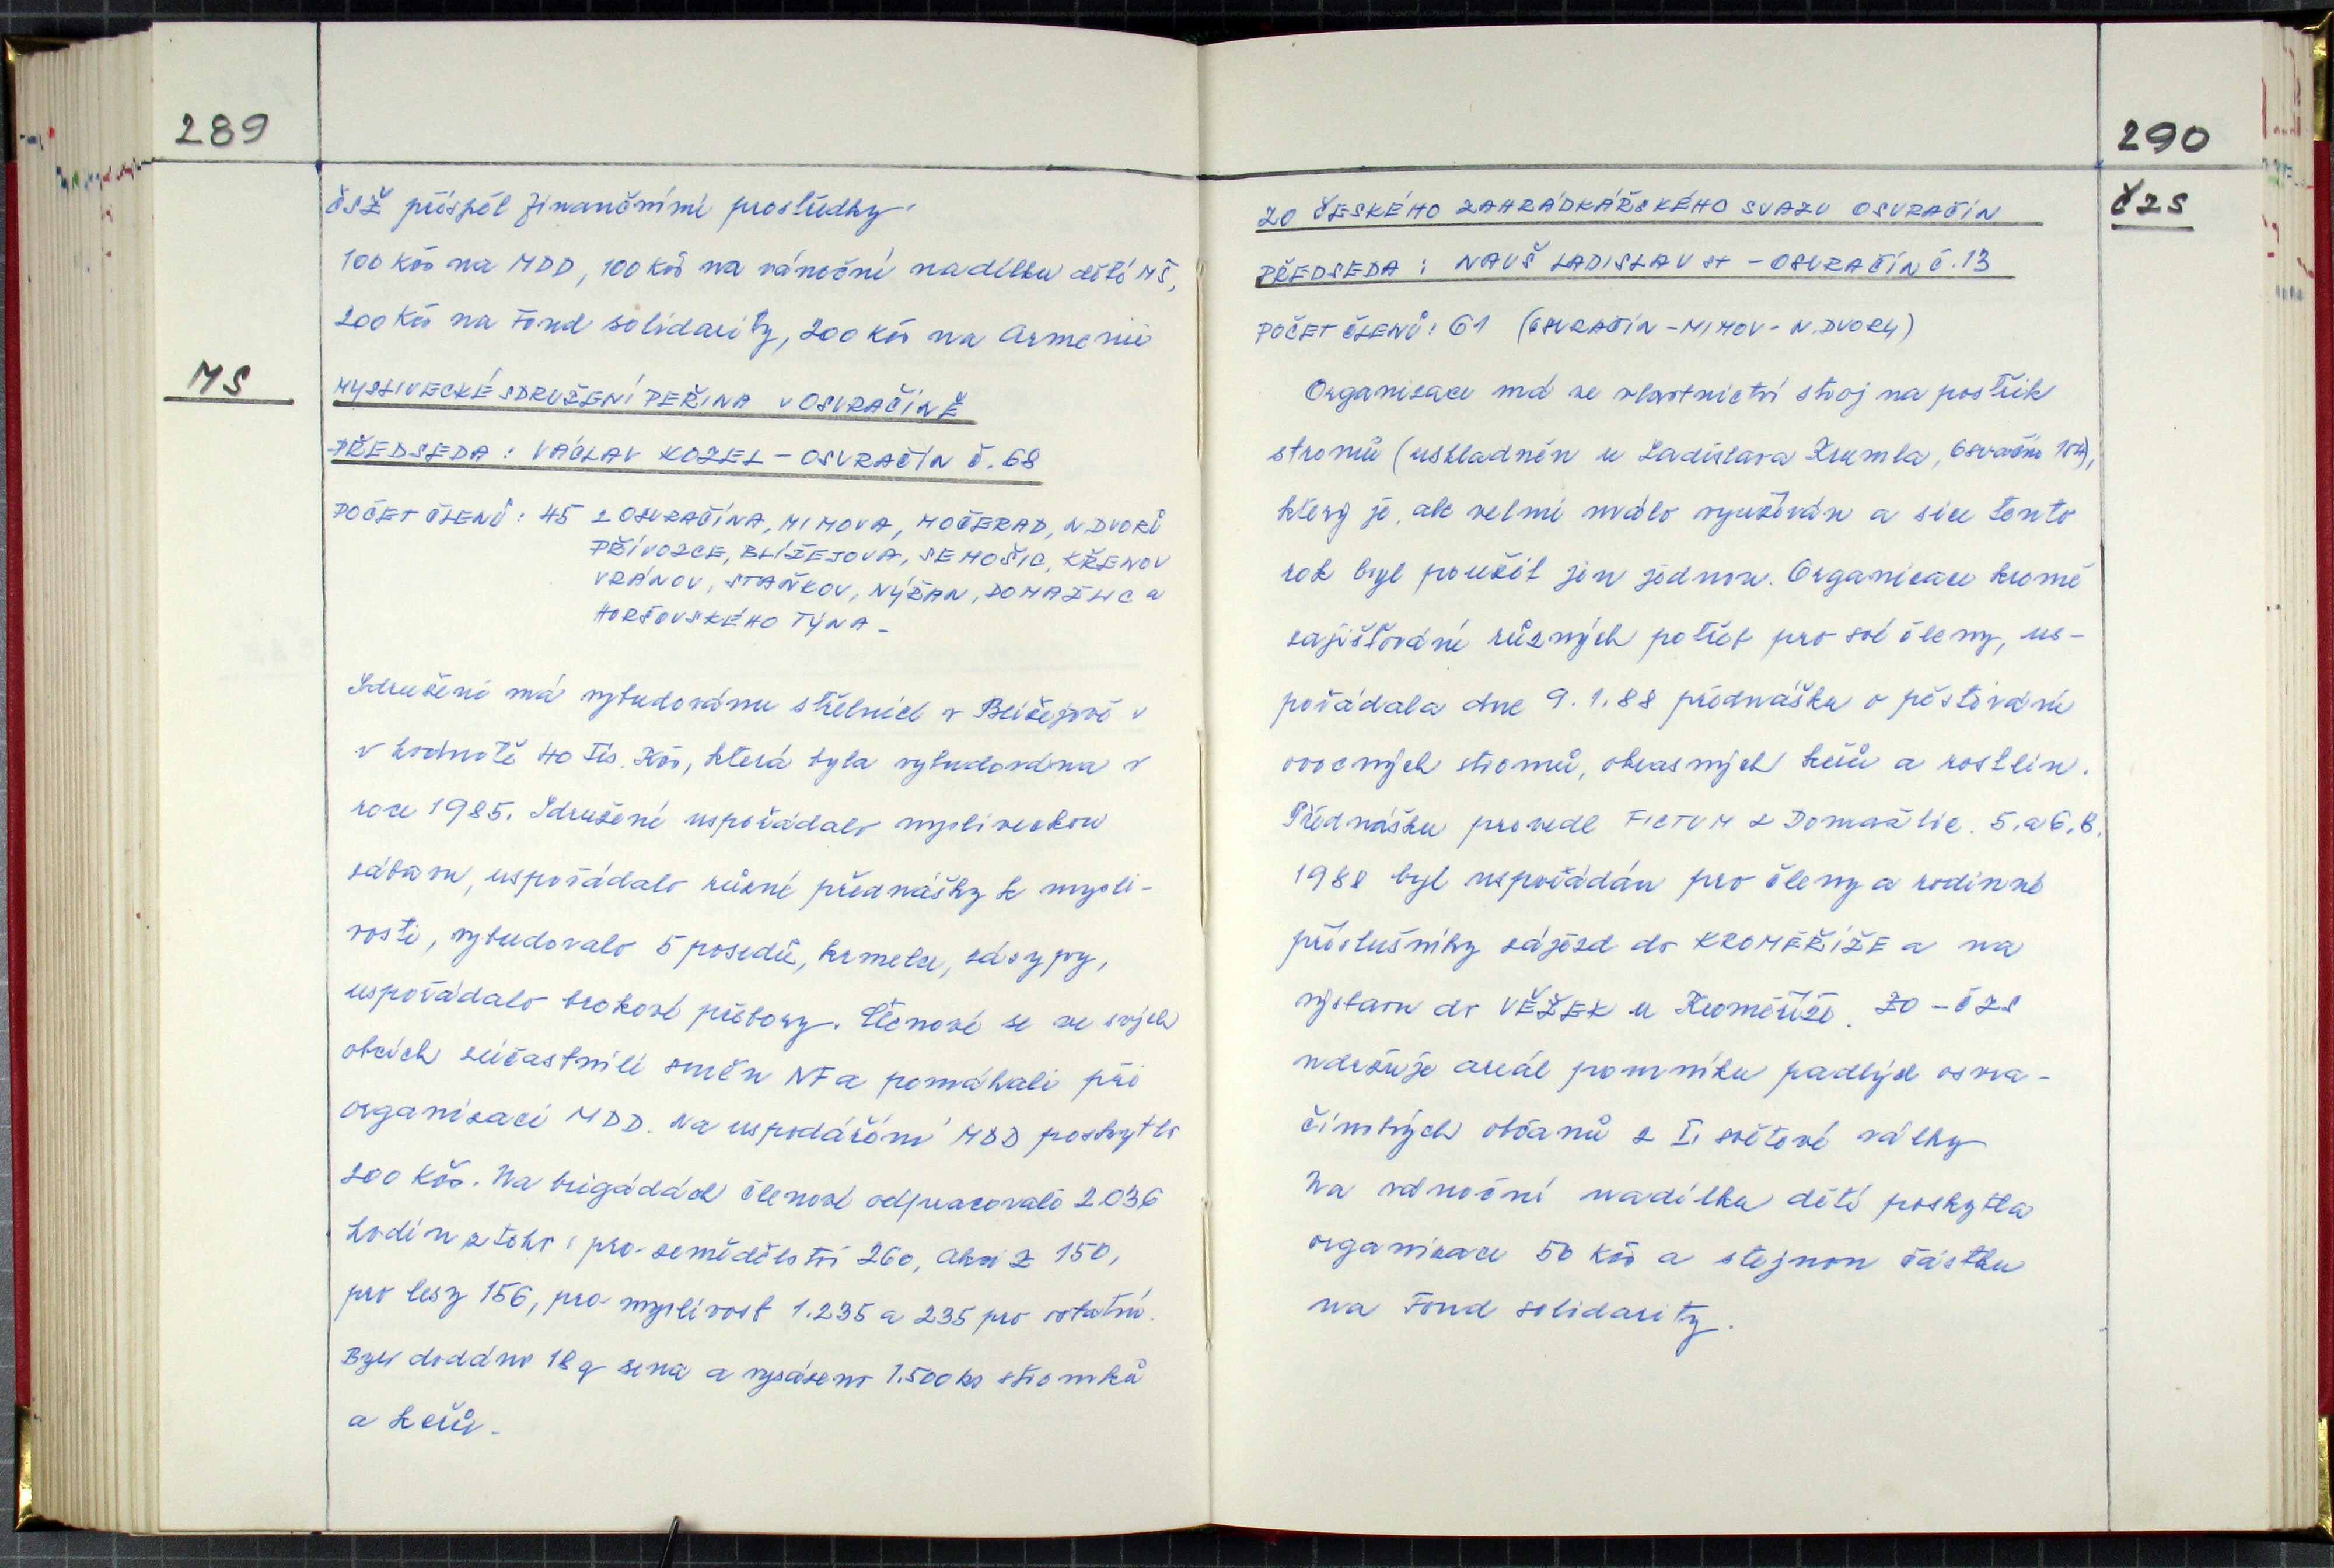 289
ČSŽ přispěl finančními prostředky
100 Kčs na MDD, 100 Kčs na vánoční nadílku dětí MŠ,
200 Kčs na Fond solidarity, 200 Kčs na Armenii
MS
MYSLIVECKÉ SDRUŽENÍ PEŘINA V OSVRAČÍNĚ
PŘEDSEDA: VÁCLAV KOZEL - OSVRAČÍN Č. 68
POČET ČLENŮ: 45 Z OSVRAČÍNA, MIMOVA, MOČERAD, N DVORŮ
PŘÍVOZCE, BLÍŽEJOVA, SEMOŠIC, KŘENOV
VRÁNOV, STAŇKOV, NÝŘAN, DOMAŽLIC a
HORŠOVSKÉHO TÝNA -
Sdružení má vybudovánu střelnici v Blížejově v
v hodnotě 40 tis. Kčs, která byla vybudována v
roce 1985. Sdružení uspořádalo mysliveckou
zábavu, uspořádalo různé přednášky k mysli-
vosti, vybudovalo 5 posedů, krmelce, zásypy,
uspořádalo brokové přebory. Členové se ve svých
obcích zúčastnili směn NF a pomáhali při
organizaci MDD. Na uspořádání MDD poskytlo
200 Kčs. Na brigádách členové odpracovali 2.036
hodin z toho: pro zemědělství 260, akci Z 150,
pro lesy 156, pro myslivost 1.235 a 235 pro ostatní.
Bylo dodáno 18 q sena a vysázeno 1.500 ks stromků
a keřů -
290
ČZS
ZO ČESKÉHO ZAHRÁDKÁŘSKÉHO SVAZU OSVRAČÍN
PŘEDSEDA: NAUŠ LADISLAV st - OSVRAČÍN č. 13
POČET ČLENŮ: 61 (OSVRAČÍN - MIMOV - N. DVORY)
Organizace má ve vlastnictví stroj na postřik
stromů (uskladněn u Ladislava Krumla, Osvračín 154),
který je, ale velmi málo využíván a sice tento
rok byl použit jen jednou. Organizace kromě
zajišťování různých potřeb pro své členy, us-
pořádala dne 9.1.88 přednášku o pěstování
ovocných stromů, okrasných keřů a rostlin.
Přednášku provedl FICTUM z Domažlic. 5. a 6.8.
1988 byl uspořádán pro členy a rodinné
příslušníky zájezd do KROMĚŘÍŽE a na
výstavu do VĚŽEK u Kroměříže. ZO - ČZS
udržuje areál pomníku padlých osvra-
čínských občanů z I. světové války
Na vánoční nadílku dětí poskytla
organizace 50 Kčs a stejnou částku
na Fond solidarity.